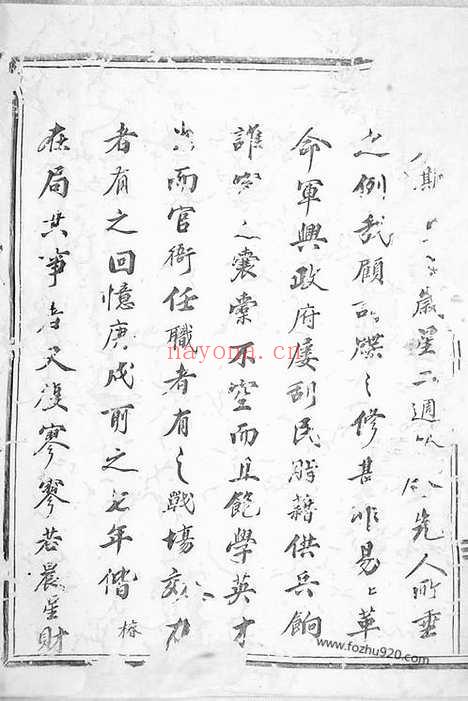 斯歲星一週以先人所垂
之例哉顧譜牒之修甚非易易革
命軍興政府屢刮民脂藉供兵餉
誰家之囊橐不空而且飽學英才
出而官衙任職者有之戰場效力
者有之回憶庚戌前之父年偕
椿
在局共事者又復寥寥若晨星財
nayona.cn
www.fozhu920.com